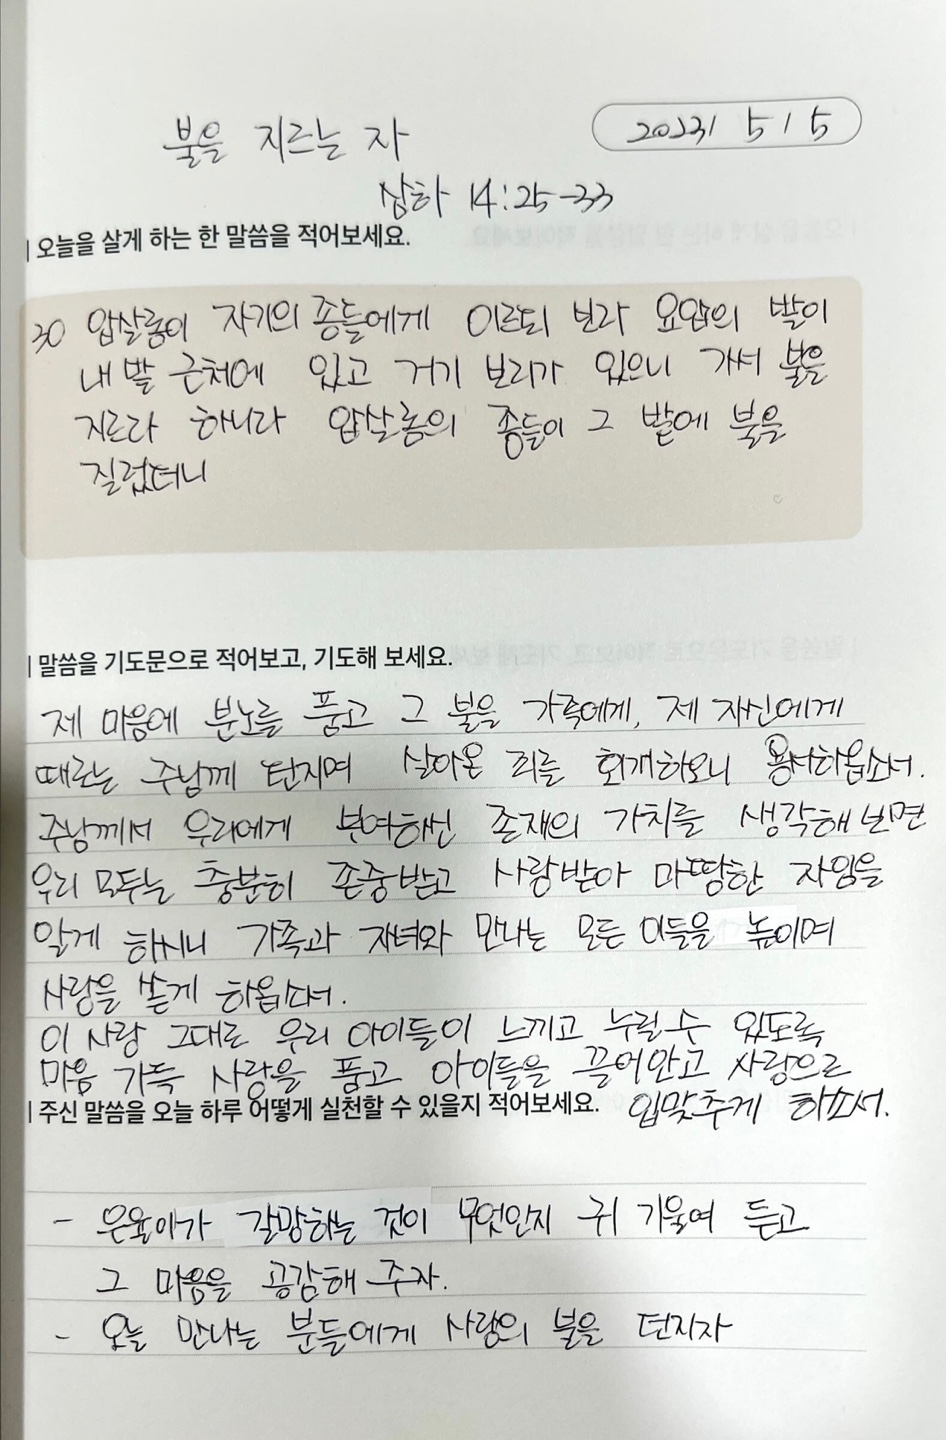 불을 지르는 자
20231 5 1 5
삼하 14:25-33
| 오늘을 살게 하는 한 말씀을 적어보세요.
30 압살롬이 자기의 종들에게 이르되 보라 요압의 밭이
내 밭 근처에 있고 거기 보리가 있으니 가서 불을
지르라 하니라 압살롬의 종들이 그 밭에 불을
질렀더니
| 말씀을 기도문으로 적어보고, 기도해 보세요.
제 마음에 분노를 품고 그 불을 가족에게, 제 자신에게
때로는 주님께 던지며 살아온 죄를 회개하오니 용서하옵소서.
주님께서 우리에게 부여하신 존재의 가치를 생각해 보면
우리 모두는 충분히 존중받고 사랑받아 마땅한 자임을
알게 하시니 가족과 자녀와 만나는 모든 이들을 높이며
사랑을 쏟게 하옵소서.
이 사랑 그대로 우리 아이들이 느끼고 누릴 수 있도록
마음 가득 사랑을 품고 아이들을 끌어안고 사랑으로
입맞추게 하소서.
| 주신 말씀을 오늘 하루 어떻게 실천할 수 있을지 적어보세요.
- 은율이가 갈망하는 것이 무엇인지 귀 기울여 듣고
그 마음을 공감해 주자.
- 오늘 만나는 분들에게 사랑의 불을 던지자